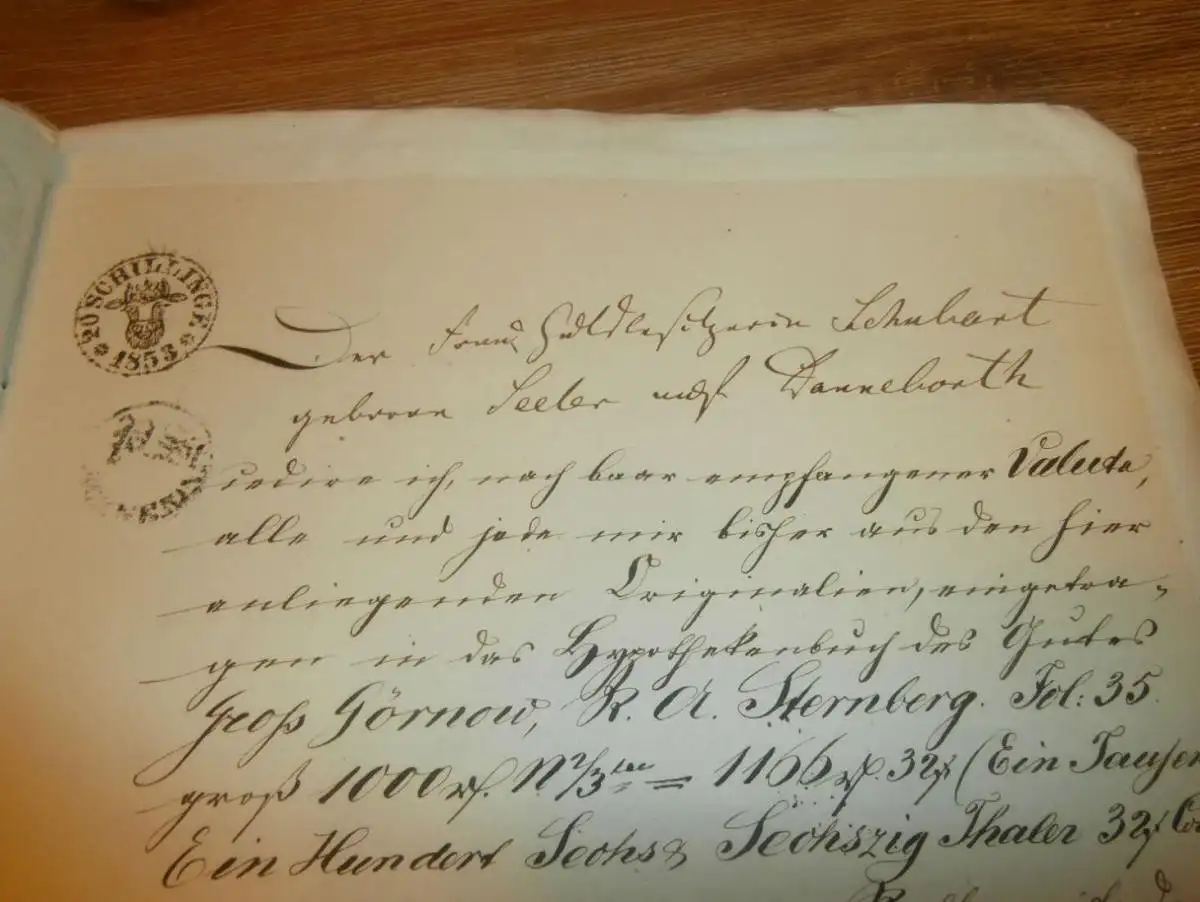 20 SCHILLINGE
1853
Der Frau Gutsbesitzerin Schubart
geboren Seeler Danneborth
cedire ich, nach baar empfangener Valuta,
alle und jede mir bisher aus den hier
anliegenden Originalien, eingetra-
gen in das Hypothekenbuch des Gutes
Groß Görnow, R. A. Sternberg. Fol: 35.
groß 1000 rℓ. N 2/3 = 1166 rℓ. 32 ß (Ein Tausen
Ein Hundert Sechs & Sechszig Thaler 32 ß Co